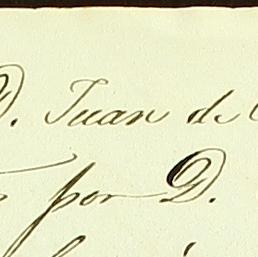 D. Juan de
por D.